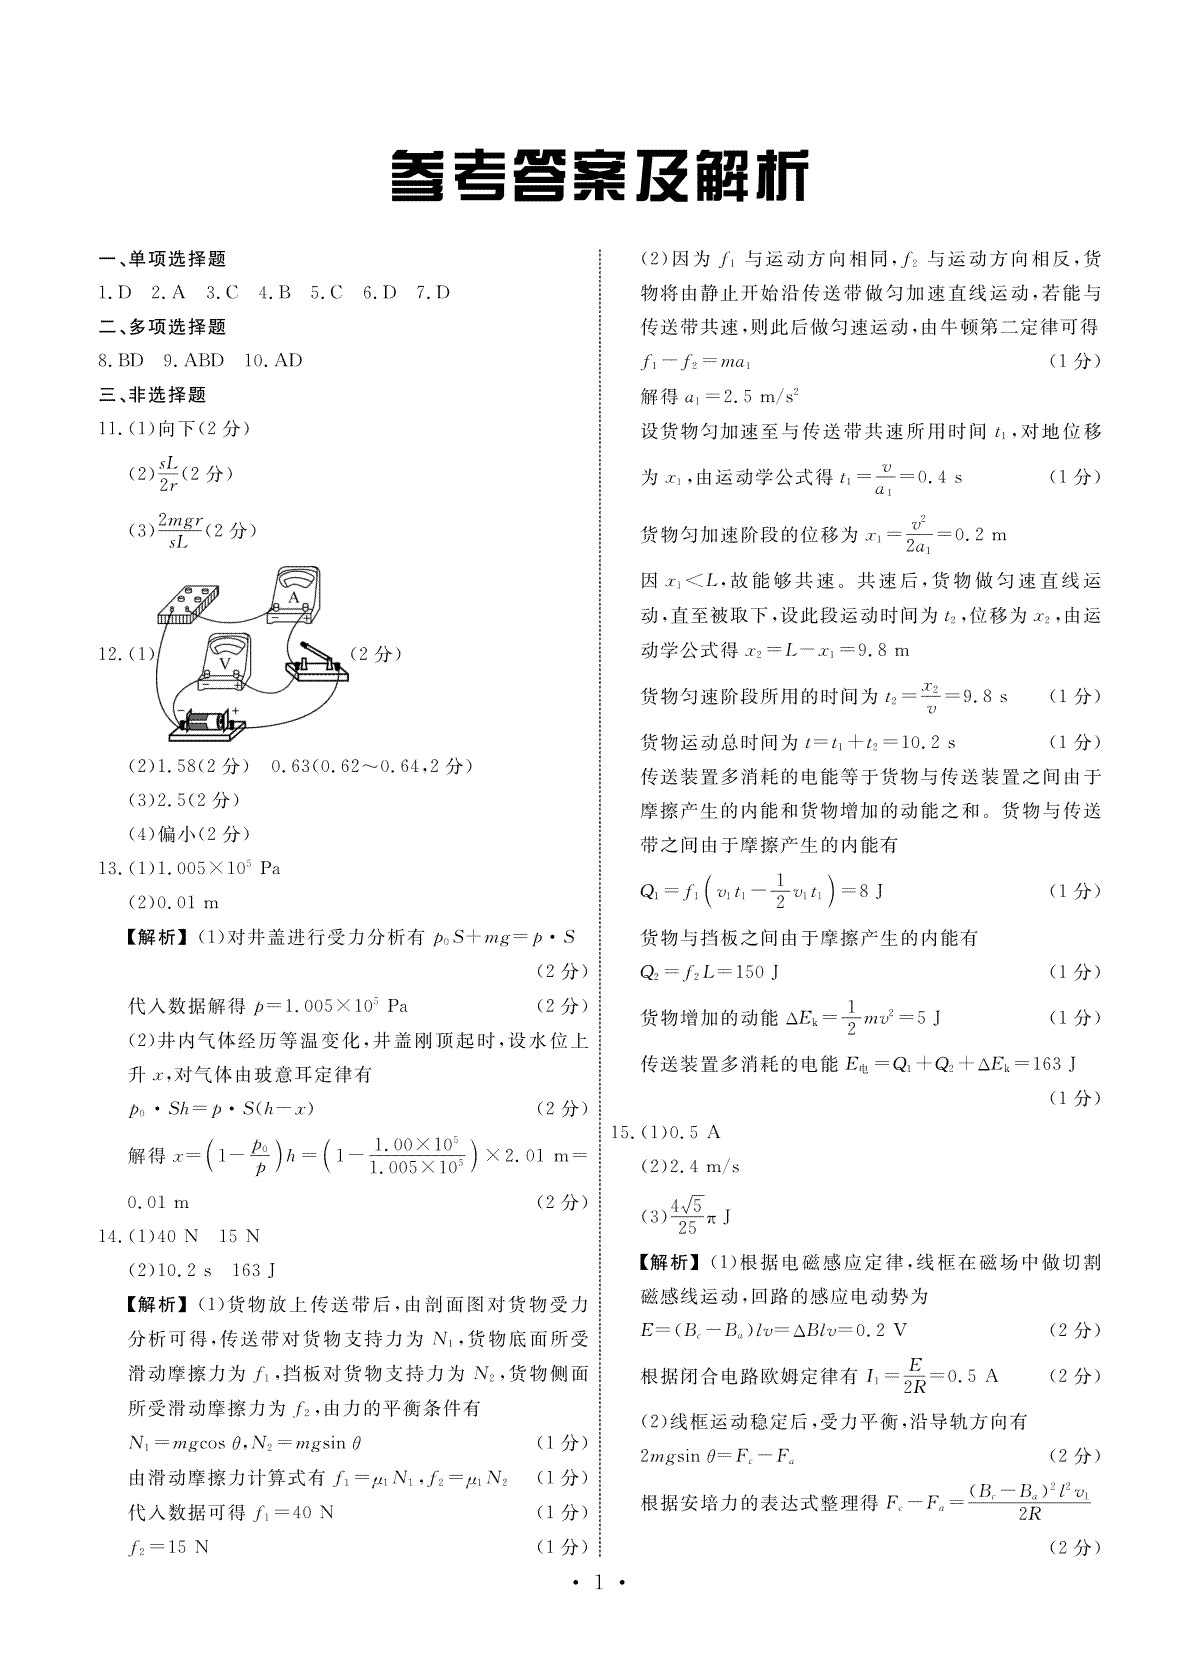 参考答案及解析
一、单项选择题
1.D 2.A 3.C 4.B 5.C 6.D 7.D
二、多项选择题
8.BD 9.ABD 10.AD
三、非选择题
11.(1)向下(2 分)
(2)sL/2r(2 分)
(3)2mgr/sL(2 分)
A
V
− +
12.(1) (2 分)
(2)1.58(2 分) 0.63(0.62～0.64,2 分)
(3)2.5(2 分)
(4)偏小(2 分)
13.(1)1.005×10⁵ Pa
(2)0.01 m
【解析】(1)对井盖进行受力分析有 p₀S+mg=p·S
(2 分)
代入数据解得 p=1.005×10⁵ Pa (2 分)
(2)井内气体经历等温变化,井盖刚顶起时,设水位上
升 x,对气体由玻意耳定律有
p₀·Sh=p·S(h−x) (2 分)
解得 x=(1−p₀/p)h=(1−1.00×10⁵/1.005×10⁵)×2.01 m=
0.01 m (2 分)
14.(1)40 N 15 N
(2)10.2 s 163 J
【解析】(1)货物放上传送带后,由剖面图对货物受力
分析可得,传送带对货物支持力为 N₁,货物底面所受
滑动摩擦力为 f₁,挡板对货物支持力为 N₂,货物侧面
所受滑动摩擦力为 f₂,由力的平衡条件有
N₁=mgcos θ,N₂=mgsin θ (1 分)
由滑动摩擦力计算式有 f₁=μ₁N₁,f₂=μ₁N₂ (1 分)
代入数据可得 f₁=40 N (1 分)
f₂=15 N (1 分)
(2)因为 f₁ 与运动方向相同,f₂ 与运动方向相反,货
物将由静止开始沿传送带做匀加速直线运动,若能与
传送带共速,则此后做匀速运动,由牛顿第二定律可得
f₁−f₂=ma₁ (1 分)
解得 a₁=2.5 m/s²
设货物匀加速至与传送带共速所用时间 t₁,对地位移
为 x₁,由运动学公式得 t₁=v/a₁=0.4 s (1 分)
货物匀加速阶段的位移为 x₁=v²/2a₁=0.2 m
因 x₁<L,故能够共速。共速后,货物做匀速直线运
动,直至被取下,设此段运动时间为 t₂,位移为 x₂,由运
动学公式得 x₂=L−x₁=9.8 m
货物匀速阶段所用的时间为 t₂=x₂/v=9.8 s (1 分)
货物运动总时间为 t=t₁+t₂=10.2 s (1 分)
传送装置多消耗的电能等于货物与传送装置之间由于
摩擦产生的内能和货物增加的动能之和。货物与传送
带之间由于摩擦产生的内能有
Q₁=f₁(v₁t₁−1/2v₁t₁)=8 J (1 分)
货物与挡板之间由于摩擦产生的内能有
Q₂=f₂L=150 J (1 分)
货物增加的动能 ΔEₖ=1/2mv²=5 J (1 分)
传送装置多消耗的电能 E电=Q₁+Q₂+ΔEₖ=163 J
(1 分)
15.(1)0.5 A
(2)2.4 m/s
(3)4√5/25π J
【解析】(1)根据电磁感应定律,线框在磁场中做切割
磁感线运动,回路的感应电动势为
E=(B_c−B_a)lv=ΔBlv=0.2 V (2 分)
根据闭合电路欧姆定律有 I₁=E/2R=0.5 A (2 分)
(2)线框运动稳定后,受力平衡,沿导轨方向有
2mgsin θ=F_c−F_a (2 分)
根据安培力的表达式整理得 F_c−F_a=(B_c−B_a)²l²v₁/2R
(2 分)
· 1 ·